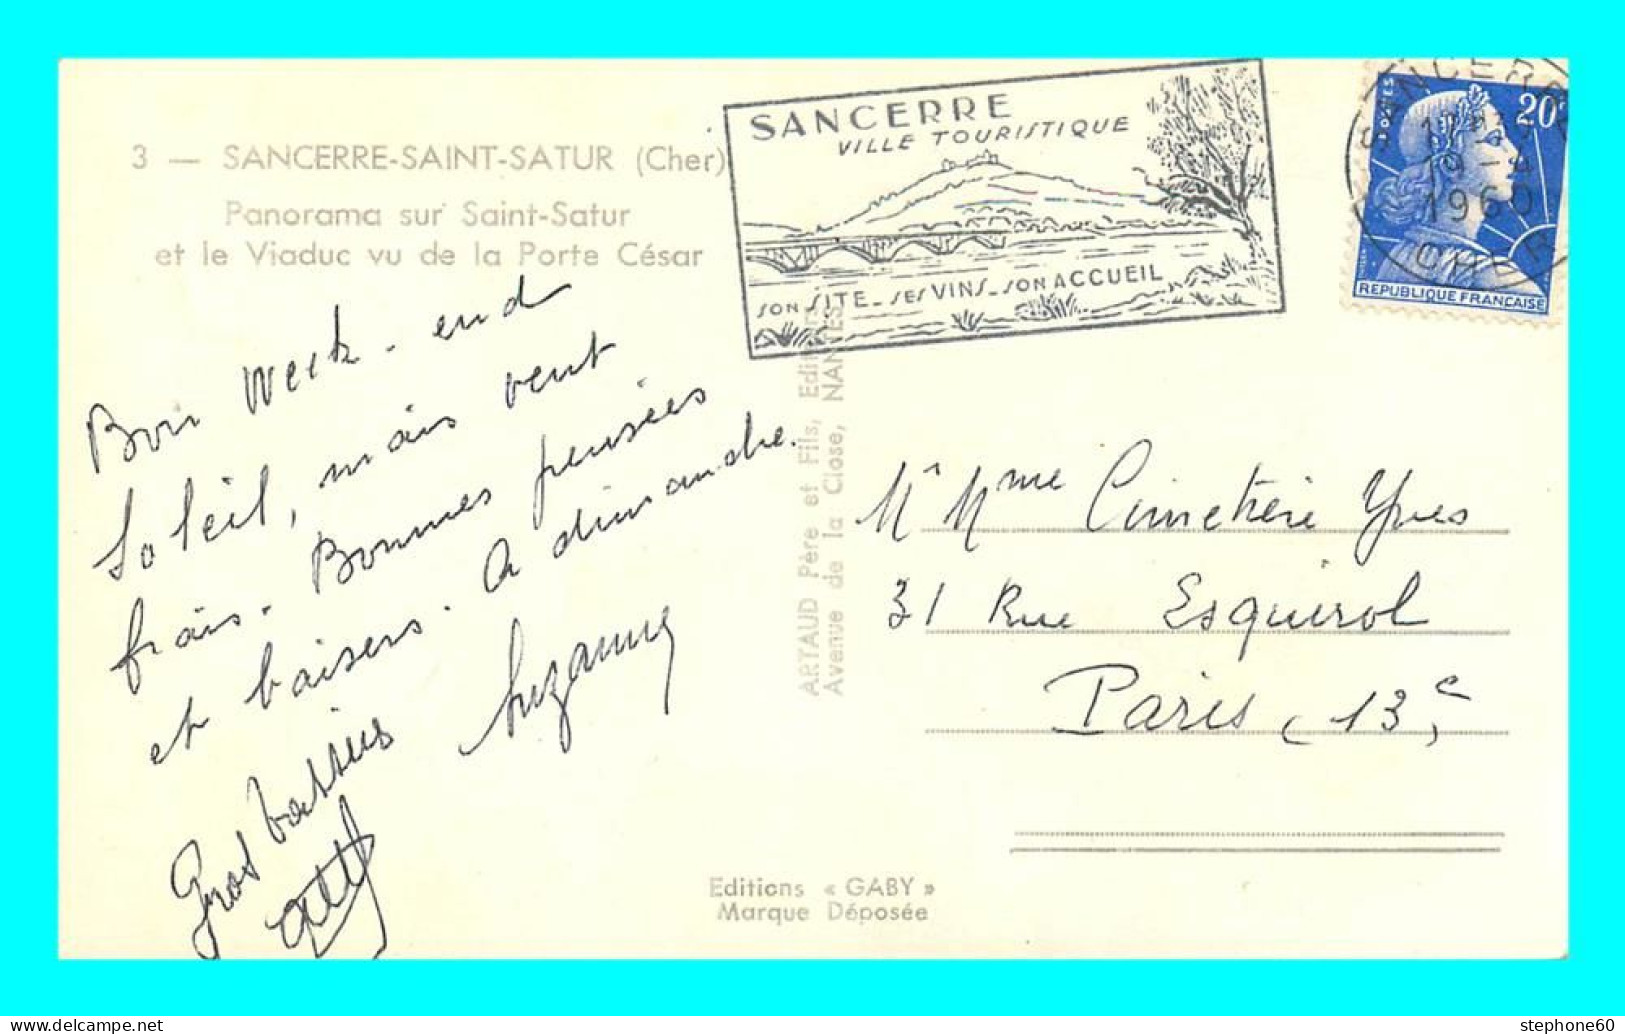 3 — SANCERRE-SAINT-SATUR (Cher)
Panorama sur Saint-Satur
et le Viaduc vu de la Porte César
SANCERRE
VILLE TOURISTIQUE
SON SITE - SES VINS - SON ACCUEIL
SANCERRE
19 - 4
1960
CHER
POSTES
20F
REPUBLIQUE FRANCAISE
Bon Week-end
Soleil, mais vent
frais. Bonnes pensées
et baisers. A dimanche.
Suzanne
Gros
ARTAUD Père et Fils, Editeurs
Avenue de la Close, NANTES
Mr Mme Cimetière Yves
31 Rue Esquirol
Paris (13e
Editions « GABY »
Marque Déposée
stephone60